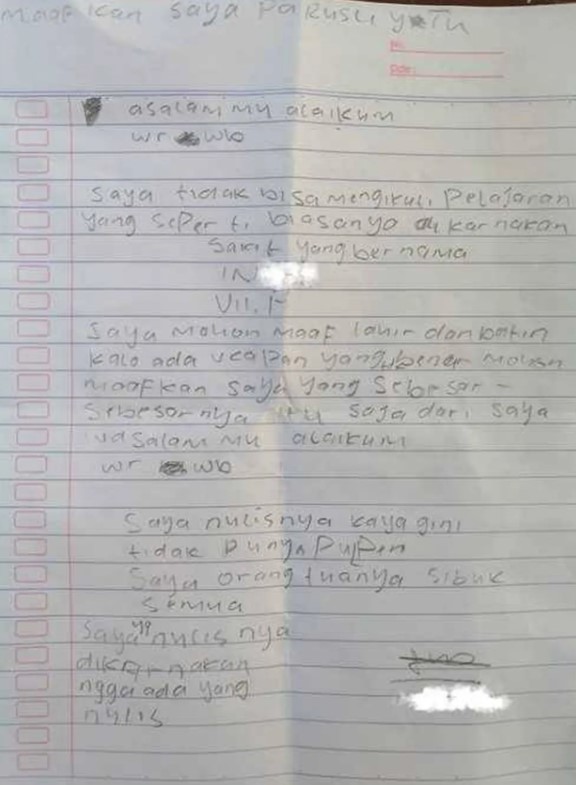 maafkan saya Pa Rusli
No:
Date:
asalam mu alaikum
wr wb
saya tidak bisa mengikuti Pelajaran
yang seper ti biasanya di karnakan
sakit yang bernama
IN
VII.F
saya mohon maaf lahir dan batin
kalo ada ucapan yang bener mohon
maafkan saya yang sebesar -
sebesarnya itu saja dari saya
wasalam mu alaikum
wr wb
saya nulisnya kaya gini
tidak punya pulpen
saya orang tuanya sibuk
semua
saya yg nulis nya
dikarnakan
ngga ada yang
nulis